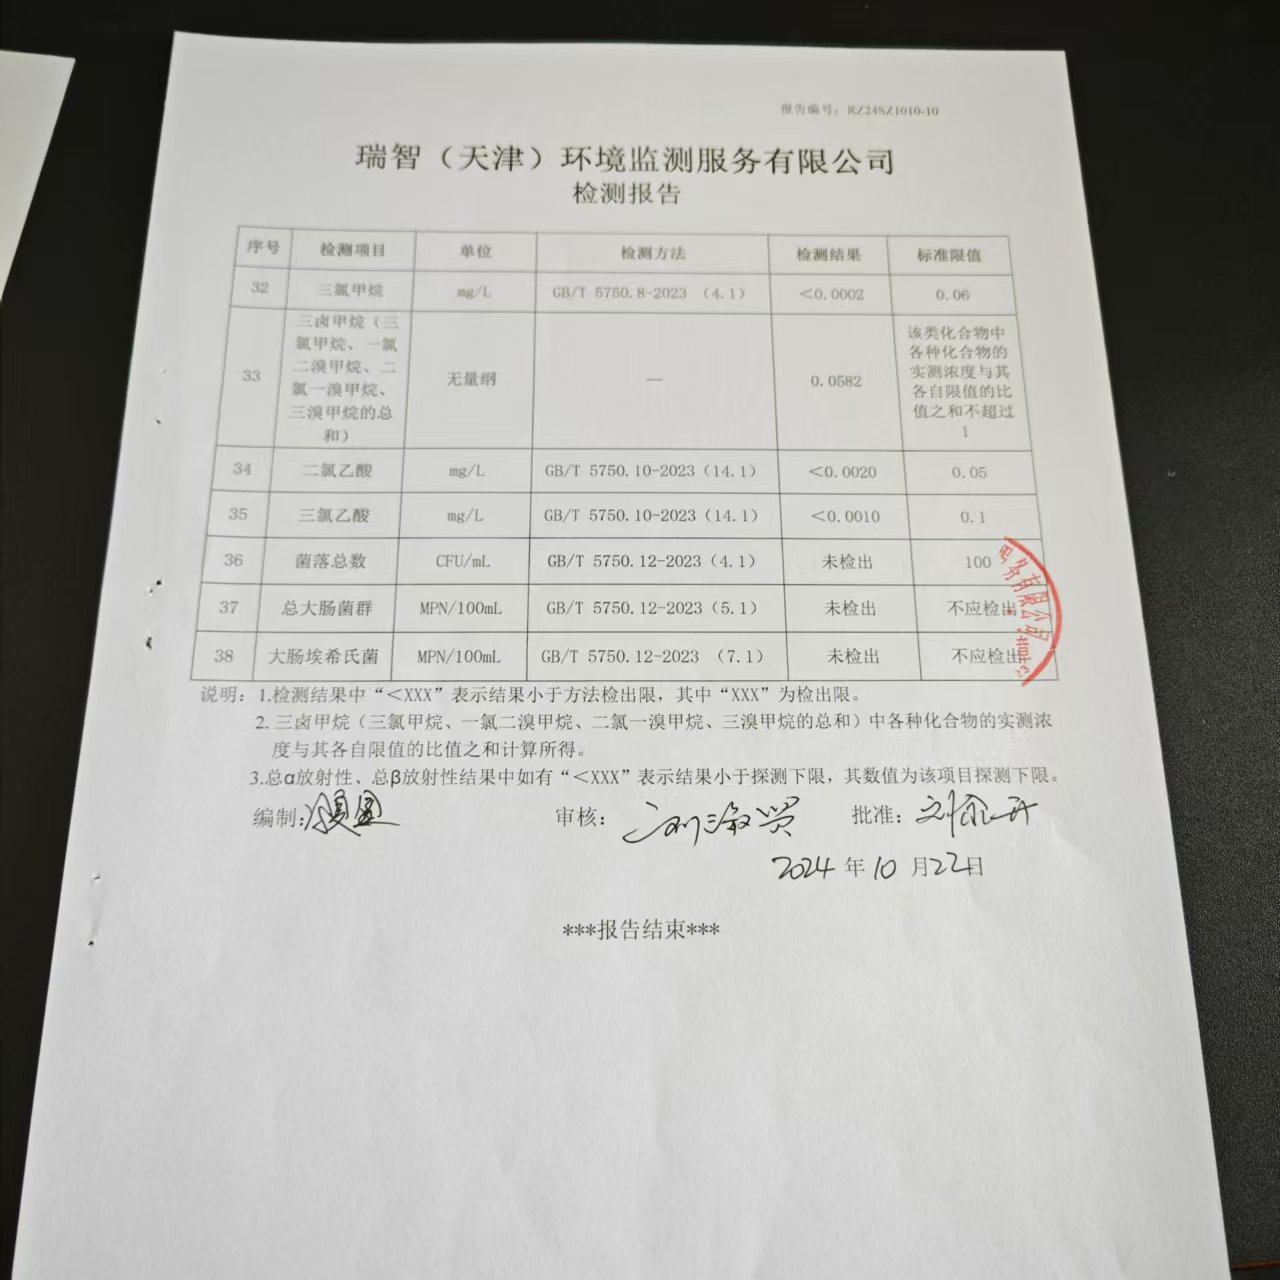 报告编号：RZ24SZ1010-10
瑞智（天津）环境监测服务有限公司
检测报告
序号 检测项目 单位 检测方法 检测结果 标准限值
32 三氯甲烷 mg/L GB/T 5750.8-2023 （4.1） <0.0002 0.06
33 三卤甲烷（三氯甲烷、一氯二溴甲烷、二氯一溴甲烷、三溴甲烷的总和） 无量纲 — 0.0582 该类化合物中各种化合物的实测浓度与其各自限值的比值之和不超过1
34 二氯乙酸 mg/L GB/T 5750.10-2023（14.1） <0.0020 0.05
35 三氯乙酸 mg/L GB/T 5750.10-2023（14.1） <0.0010 0.1
36 菌落总数 CFU/mL GB/T 5750.12-2023（4.1） 未检出 100
37 总大肠菌群 MPN/100mL GB/T 5750.12-2023（5.1） 未检出 不应检出
38 大肠埃希氏菌 MPN/100mL GB/T 5750.12-2023 （7.1） 未检出 不应检出
务有限公司
说明：1.检测结果中“＜XXX”表示结果小于方法检出限，其中“XXX”为检出限。
2. 三卤甲烷（三氯甲烷、一氯二溴甲烷、二氯一溴甲烷、三溴甲烷的总和）中各种化合物的实测浓
度与其各自限值的比值之和计算所得。
3.总α放射性、总β放射性结果中如有“＜XXX”表示结果小于探测下限，其数值为该项目探测下限。
编制： 审核： 批准：
2024 年 10 月 22 日
***报告结束***